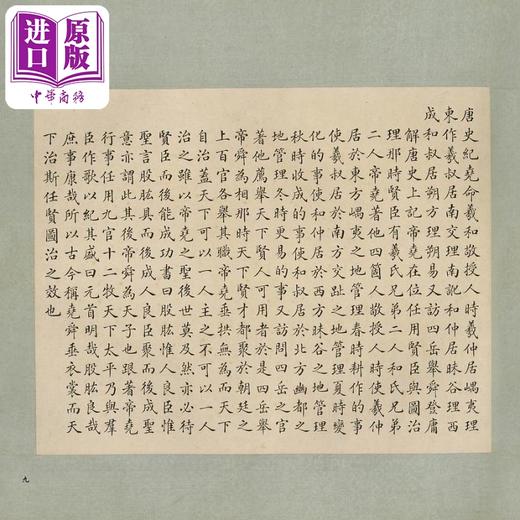 进口
原版
中华商务
唐史紀堯命羲和敬授人時羲仲居嵎夷理
東作羲叔居南交理南訛和仲居昧谷理西
成和叔居朔方理朔易又訪四岳舉舜登庸
解唐史上記帝堯在位任用賢臣與圖治
理那時賢臣有羲氏兄弟二人和氏兄弟
二人帝堯著他四箇人敬授人時使羲仲
居於東方嵎夷之地管理春時耕作的事
使羲叔居於南方交趾之地管理夏時變
化的事使和仲居於西方昧谷之地管理
秋時收成的事使和叔居於北方幽都之
地管理冬時更易的事又訪問四岳之官
著他薦舉天下賢人可用者於是四岳舉
帝舜為相那時天下賢才都聚於朝廷之
上百官各舉其職帝堯垂拱無為而天下
自治蓋天下可以一人主之不可以一人
治之雖以帝堯之聖後世莫及然亦必待
賢臣而後能成功書曰股肱惟人良臣惟
聖言股肱具而後成人良臣聚而後成聖
意亦謂此其後帝舜為天子也跟著帝堯
行事任用九官十二牧天下太平乃與羣
臣作歌以紀其盛曰元首明哉股肱良哉
庶事康哉所以古今稱堯舜垂衣裳而天
下治斯任賢圖治之效也
九